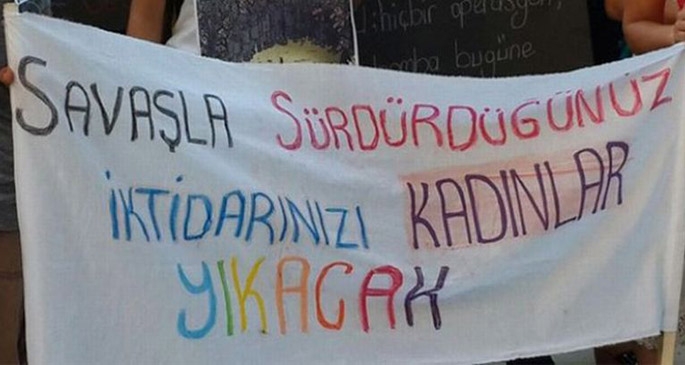 hiçbir operasyon,
bomba bugüne
SAVAŞLA SÜRDÜRDÜĞÜNÜZ
İKTİDARINIZI KADINLAR
YIKACAK